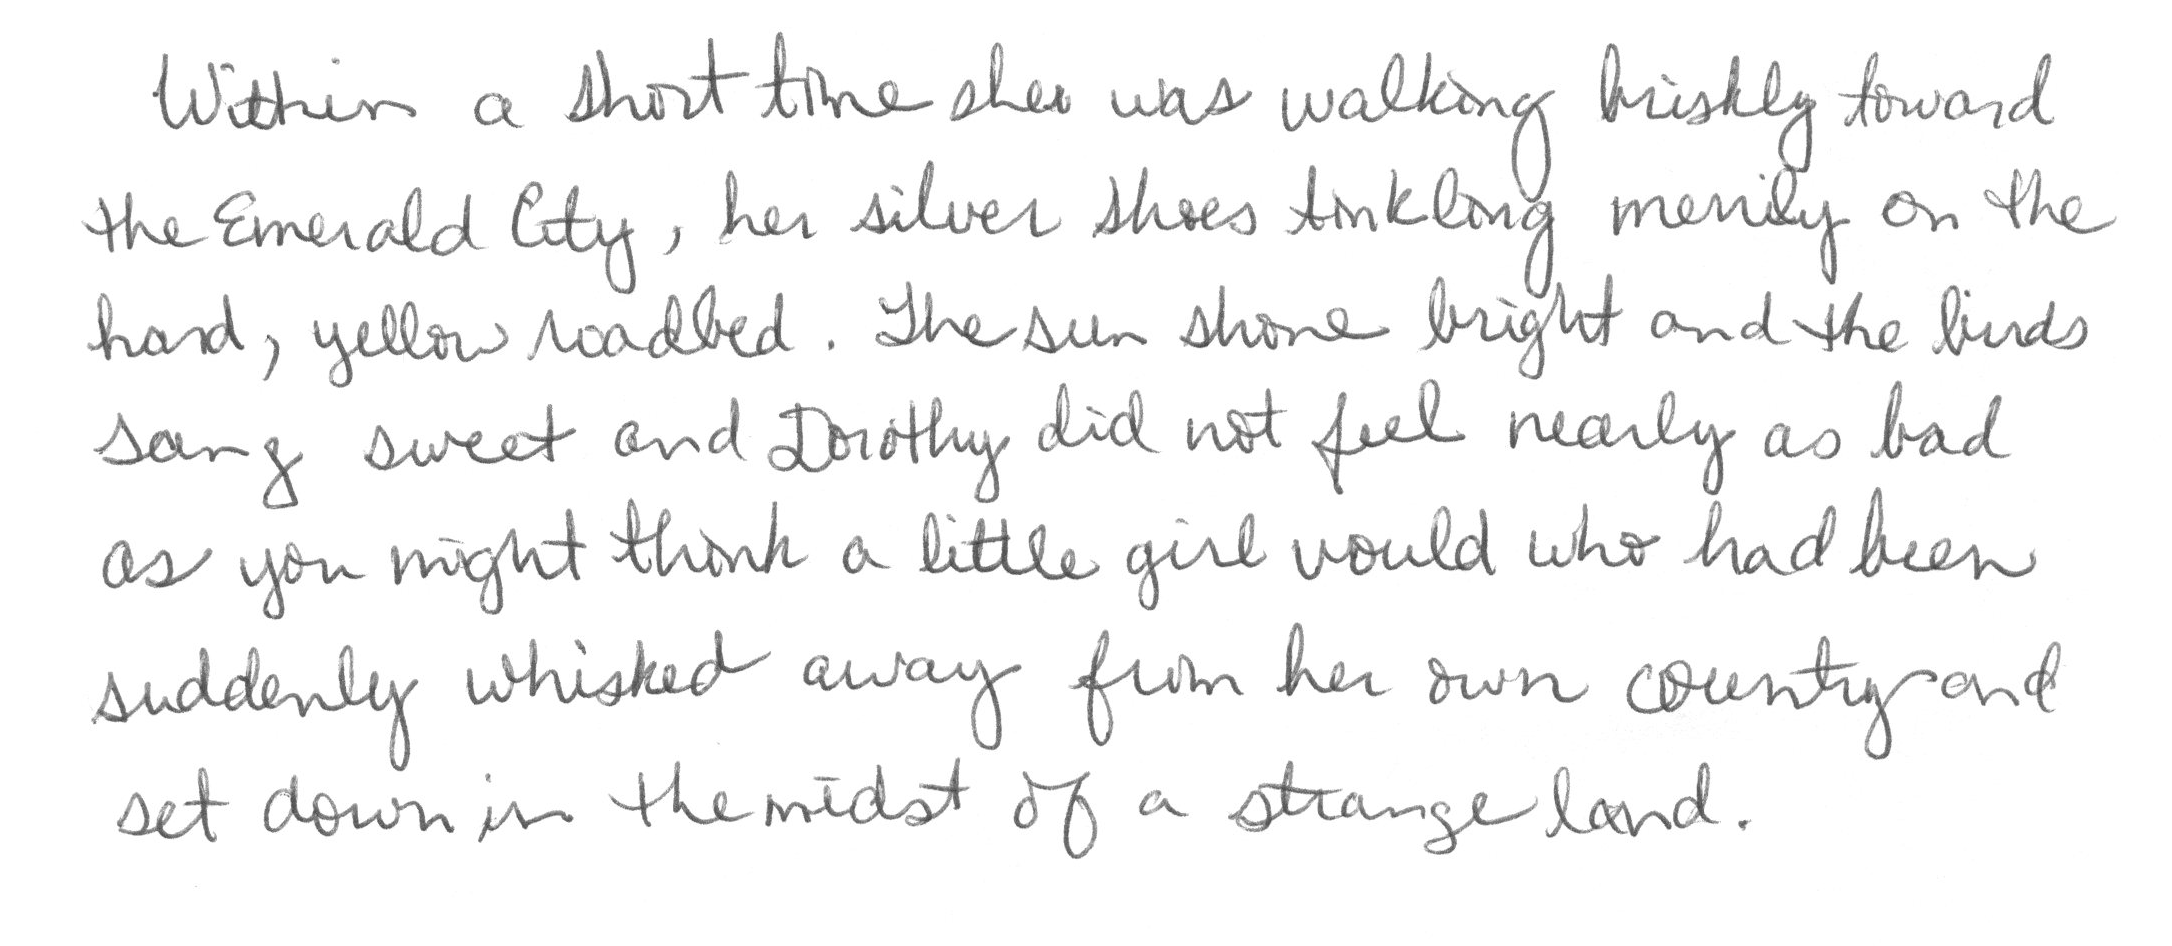 Within a short time she was walking briskly toward
the Emerald City, her silver shoes tinkling merrily on the
hard, yellow roadbed. The sun shone bright and the birds
sang sweet and Dorothy did not feel nearly as bad
as you might think a little girl would who had been
suddenly whisked away from her own country and
set down in the midst of a strange land.